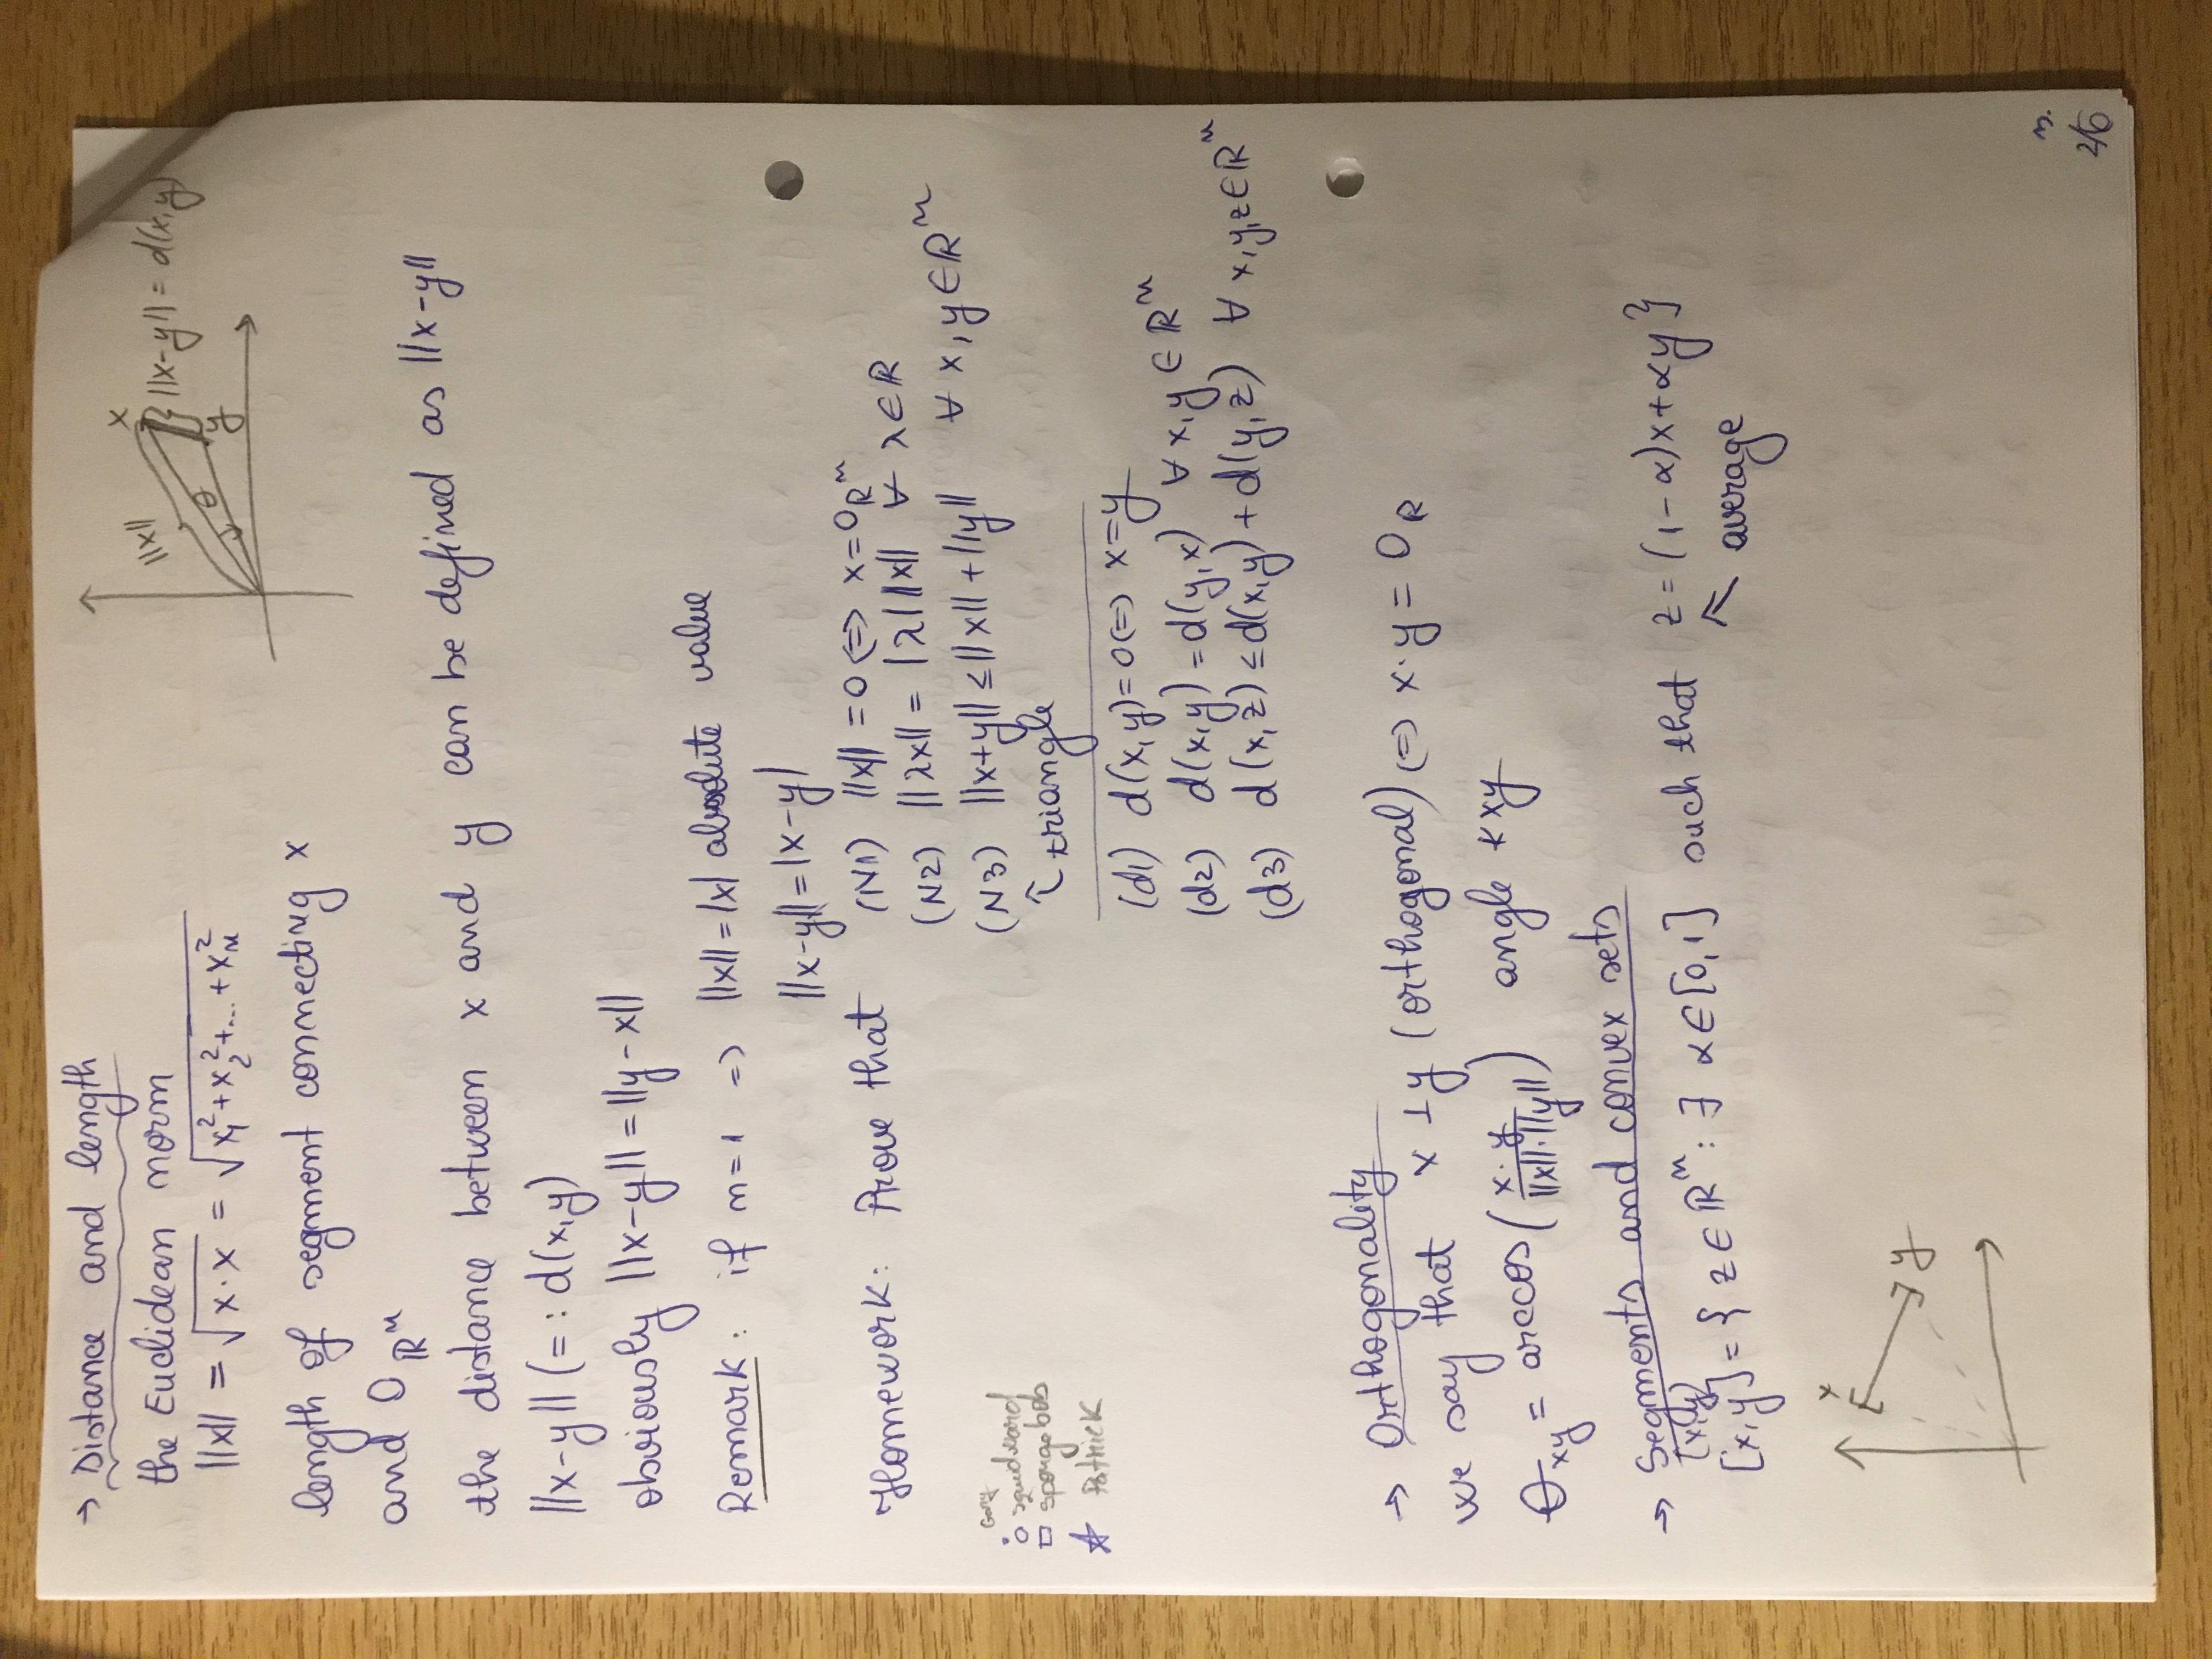 → Distance and length
the Euclidean norm
||x|| = √x·x = √x₁²+x₂²+...+xₙ²
x
||x||
θ
y
||x-y|| = d(x,y)
length of segment connecting x
and 0_ℝⁿ
the distance between x and y can be defined as ||x-y||
||x-y|| (=: d(x,y)
obviously ||x-y|| = ||y-x||
Remark: if n=1 => ||x|| = |x| absolute value
||x-y|| = |x-y|
Homework: Prove that (N1) ||x|| = 0 <=> x=0_ℝⁿ
(N2) ||λx|| = |λ| ||x|| ∀ λ∈ℝ
(N3) ||x+y|| ≤ ||x|| + ||y|| ∀ x,y∈ℝⁿ
↑ triangle
Gary
squidward
spongebob
Patrick
(d1) d(x,y)=0 <=> x=y
(d2) d(x,y) = d(y,x) ∀ x,y ∈ ℝⁿ
(d3) d(x,z) ≤ d(x,y) + d(y,z) ∀ x,y,z∈ℝⁿ
→ Orthogonality
we say that x ⊥ y (orthogonal) <=> x·y = 0_ℝ
θ_xy = arccos(x·y / ||x||·||y||) angle ∢xy
→ Segments and convex sets
(x,y)
[x,y] = { z∈ℝⁿ: ∃ α∈[0,1] such that z = (1-α)x+αy }
↖ average
x
y
3.
2/6